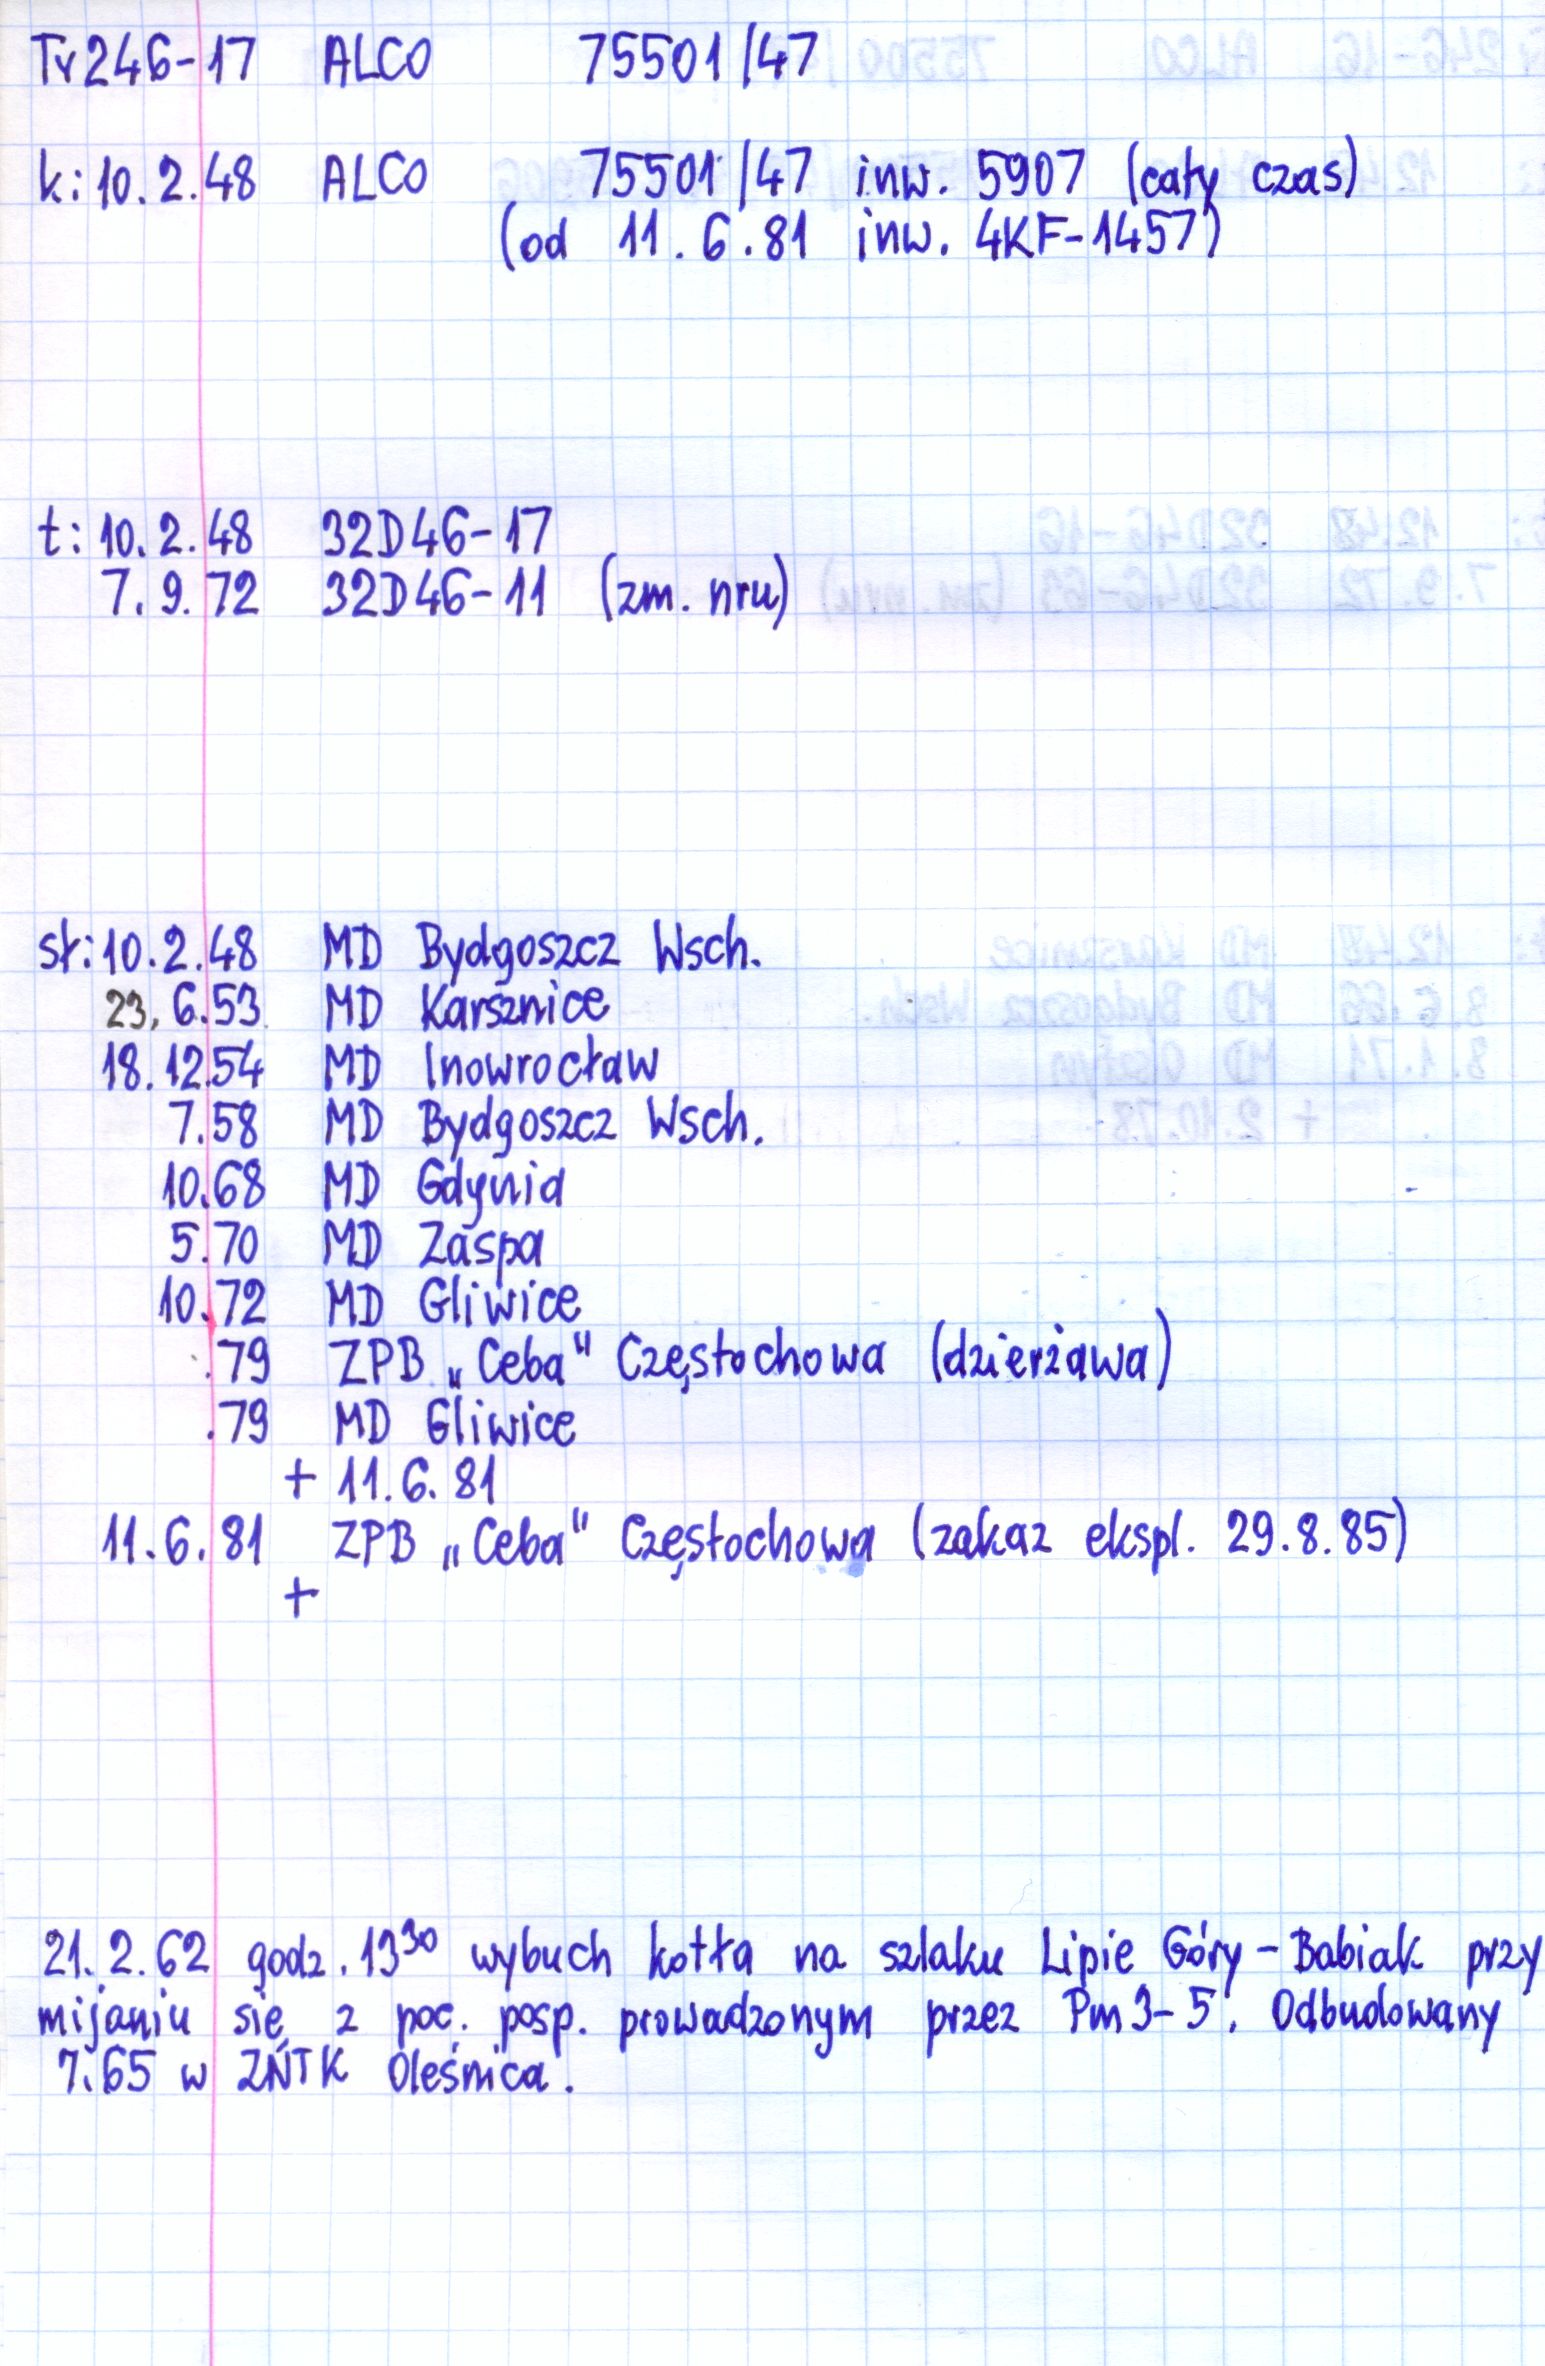 Tr246-17 ALCO 75501/47
k: 10.2.48 ALCO 75501/47 inw. 5907 (cały czas)
(od 11.6.81 inw. 4KF-1457)
t: 10.2.48 32D46-17
7.9.72 32D46-11 (zm. nru)
st: 10.2.48 MD Bydgoszcz Wsch.
23, 6.53 MD Karsznice
18.12.54 MD Inowrocław
7.58 MD Bydgoszcz Wsch.
10.68 MD Gdynia
5.70 MD Zaspa
10.72 MD Gliwice
.79 ZPB „Ceba" Częstochowa (dzierżawa)
.79 MD Gliwice
+ 11.6.81
11.6.81 ZPB „Ceba" Częstochowa (zakaz ekspl. 29.8.85)
+
21.2.62 godz. 13³⁰ wybuch kotła na szlaku Lipie Góry - Babiak przy
mijaniu się z poc. posp. prowadzonym przez Pm3-5. Odbudowany
7.65 w ZNTK Oleśnica.